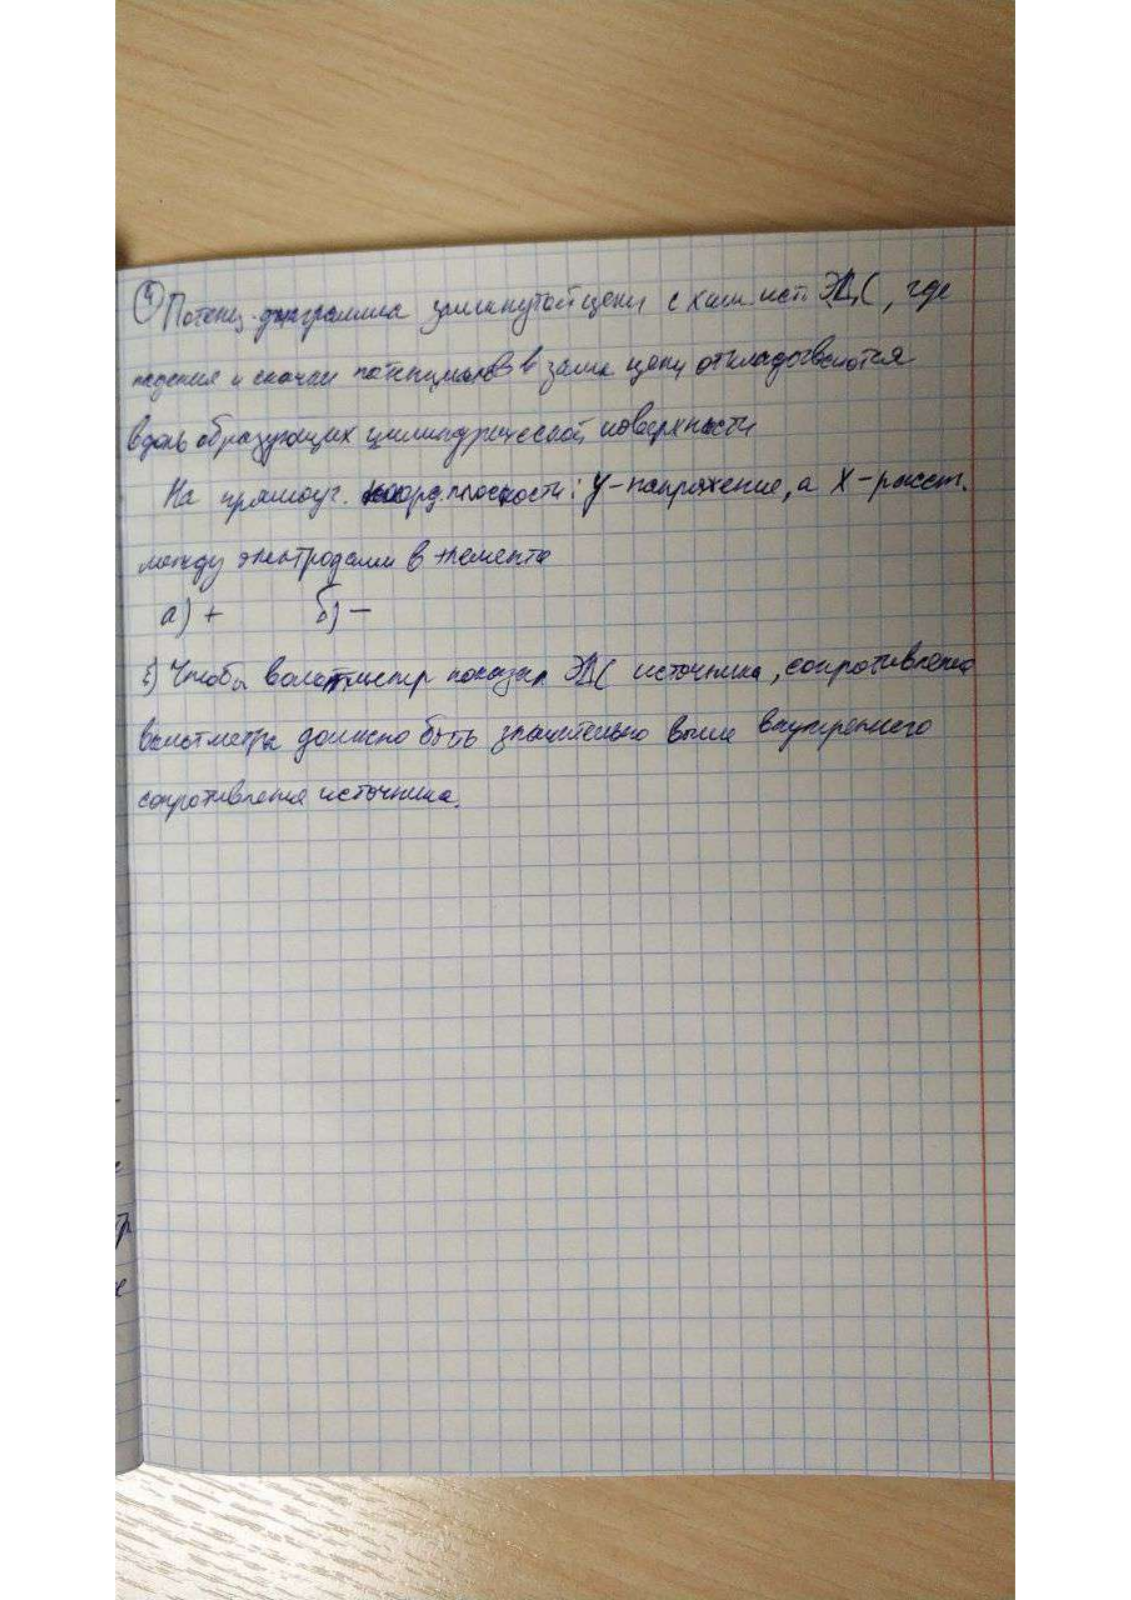 ④ Потенц. диаграмма замкнутой цепи с хим. ист. ЭДС, где
падения и скачки потенциалов в замк цепи откладываются
вдоль образующих цилиндрической поверхности
На прямоуг. коорд. плоскости: y - напряжение, а X - расст.
между электродами в элементе
а) + б) -
Чтобы вольтметр показал ЭДС источника, сопротивление
вольтметра должно быть значительно выше внутреннего
сопротивления источника.